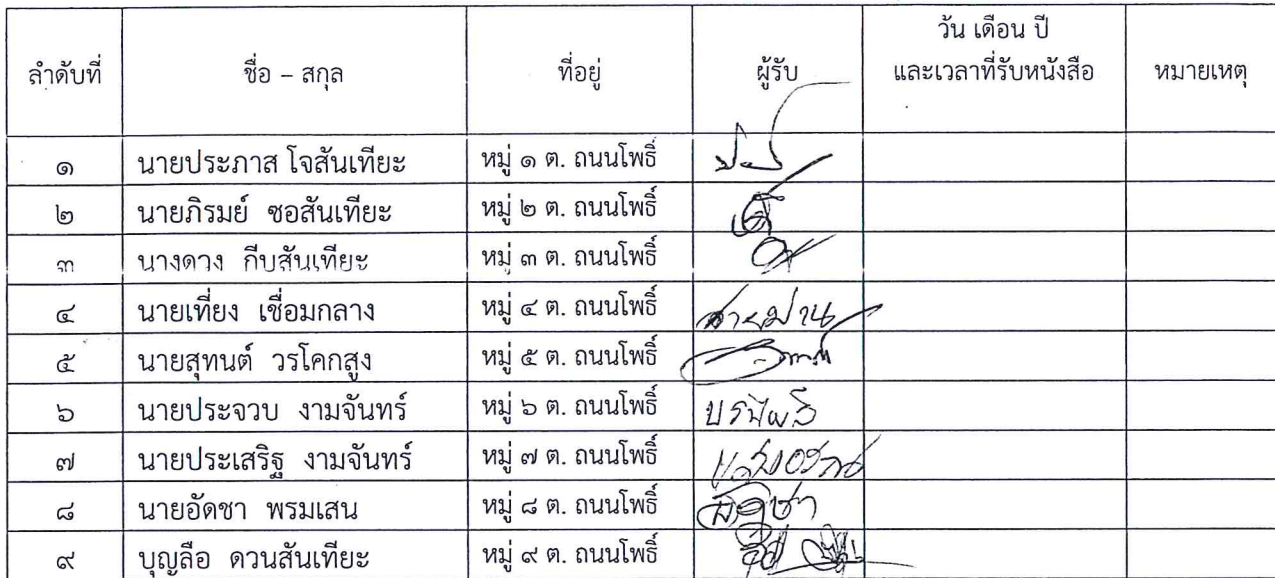 ลำดับที่ ชื่อ – สกุล ที่อยู่ ผู้รับ วัน เดือน ปี และเวลาที่รับหนังสือ หมายเหตุ
๑ นายประภาส โจสันเทียะ หมู่ ๑ ต. ถนนโพธิ์
๒ นายภิรมย์ ซอสันเทียะ หมู่ ๒ ต. ถนนโพธิ์
๓ นางดวง กีบสันเทียะ หมู่ ๓ ต. ถนนโพธิ์
๔ นายเที่ยง เชื่อมกลาง หมู่ ๔ ต. ถนนโพธิ์
๕ นายสุทนต์ วรโคกสูง หมู่ ๕ ต. ถนนโพธิ์
๖ นายประจวบ งามจันทร์ หมู่ ๖ ต. ถนนโพธิ์
๗ นายประเสริฐ งามจันทร์ หมู่ ๗ ต. ถนนโพธิ์
๘ นายอัดชา พรมเสน หมู่ ๘ ต. ถนนโพธิ์
๙ บุญลือ ดวนสันเทียะ หมู่ ๙ ต. ถนนโพธิ์